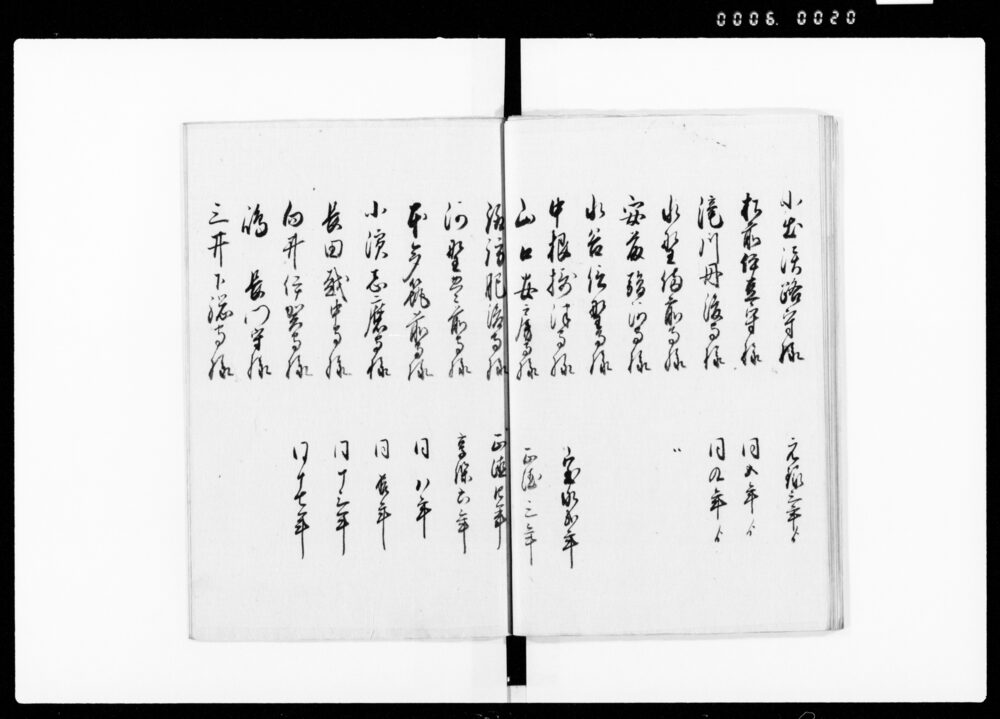 小出淡路守様　元禄三年ゟ
松前伊豆守様　同五年ゟ
滝川丹後守様　同九年ゟ
水野備前守様　〃
安藤駿河守様
水谷信濃守様
中根摂津守様　宝永 年
山口安房守様　正徳三年
諏訪肥後守様　正徳四年
河野豊前守様　享保六年
本多筑前守様　同八年
小濱志摩守様　同 年
長田越中守様　同十三年
向井伊賀守様　同十七年
嶋　長門守様
三井下総守様
0006.0020